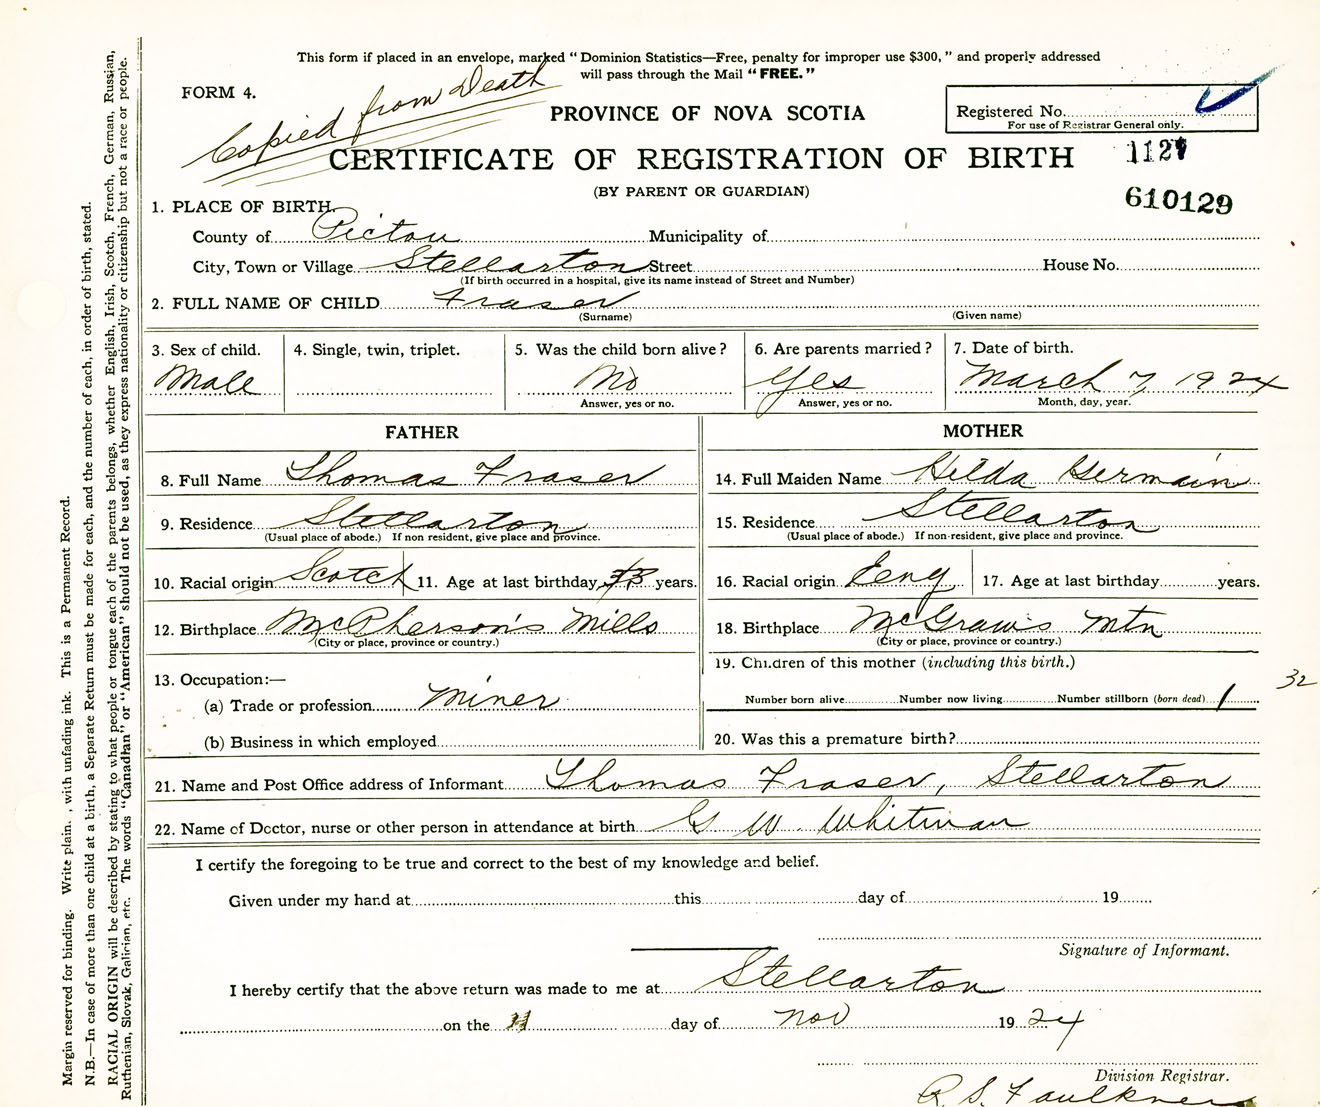 This form if placed in an envelope, marked "Dominion Statistics—Free, penalty for improper use $300," and properly addressed
will pass through the Mail "FREE."
FORM 4.
Copied from Death
PROVINCE OF NOVA SCOTIA
Registered No.
For use of Registrar General only.
CERTIFICATE OF REGISTRATION OF BIRTH
(BY PARENT OR GUARDIAN)
610129
1. PLACE OF BIRTH
County of Pictou Municipality of
City, Town or Village Stellarton Street House No.
(If birth occurred in a hospital, give its name instead of Street and Number)
2. FULL NAME OF CHILD Fraser
(Surname) (Given name)
3. Sex of child. 4. Single, twin, triplet. 5. Was the child born alive? 6. Are parents married? 7. Date of birth.
Male No Yes March 7, 1924
Answer, yes or no. Answer, yes or no. Month, day, year.
FATHER MOTHER
8. Full Name Thomas Fraser 14. Full Maiden Name Hilda Germain
9. Residence Stellarton 15. Residence Stellarton
(Usual place of abode.) If non resident, give place and province. (Usual place of abode.) If non-resident, give place and province.
10. Racial origin Scotch 11. Age at last birthday years. 16. Racial origin Eeng 17. Age at last birthday years.
12. Birthplace McPherson's Mills 18. Birthplace McGraws Mtn
(City or place, province or country.) (City or place, province or country.)
13. Occupation:— 19. Children of this mother (including this birth.)
(a) Trade or profession Miner Number born alive Number now living Number stillborn (born dead) 1
32
(b) Business in which employed 20. Was this a premature birth?
21. Name and Post Office address of Informant Thomas Fraser, Stellarton
22. Name of Doctor, nurse or other person in attendance at birth G W Whitman
I certify the foregoing to be true and correct to the best of my knowledge and belief.
Given under my hand at this day of 19
Signature of Informant.
I hereby certify that the above return was made to me at Stellarton
on the 11 day of Nov 1924
Division Registrar.
R. S. Faulkner
Margin reserved for binding. Write plain, with unfading ink. This is a Permanent Record.
N.B.—In case of more than one child at a birth, a Separate Return must be made for each, and the number of each, in order of birth, stated.
RACIAL ORIGIN will be described by stating to what people or tongue each of the parents belongs, whether English, Irish, Scotch, French, German, Russian,
Ruthenian, Slovak, Galician, etc. The words "Canadian" or "American" should not be used, as they express nationality or citizenship but not a race or people.